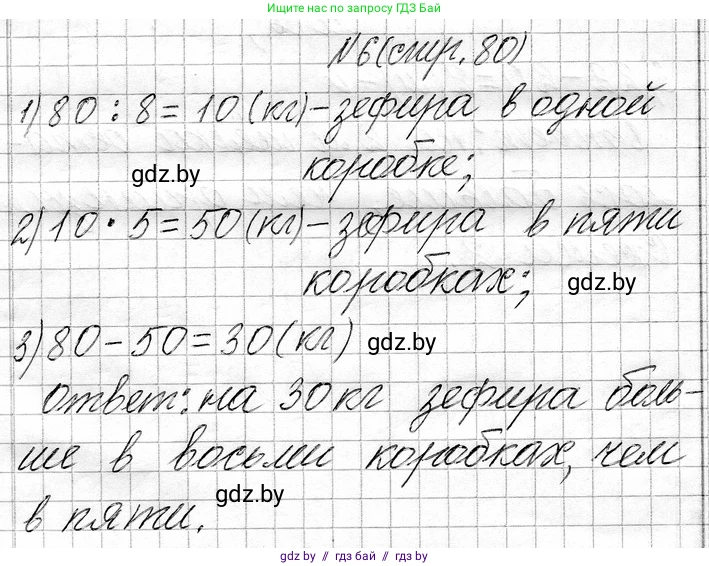 Ищите нас по запросу ГДЗ Бай
№6 (стр. 80)
1) 80 : 8 = 10 (кг) – зефира в одной
коробке;
gdz.by
2) 10 · 5 = 50 (кг) – зефира в пяти
коробках;
gdz.by
3) 80 – 50 = 30 (кг)
gdz.by
Ответ: на 30 кг зефира боль-
ше в восьми коробках, чем
gdz.by
в пяти.
gdz.by // гдз бай // гдз.by